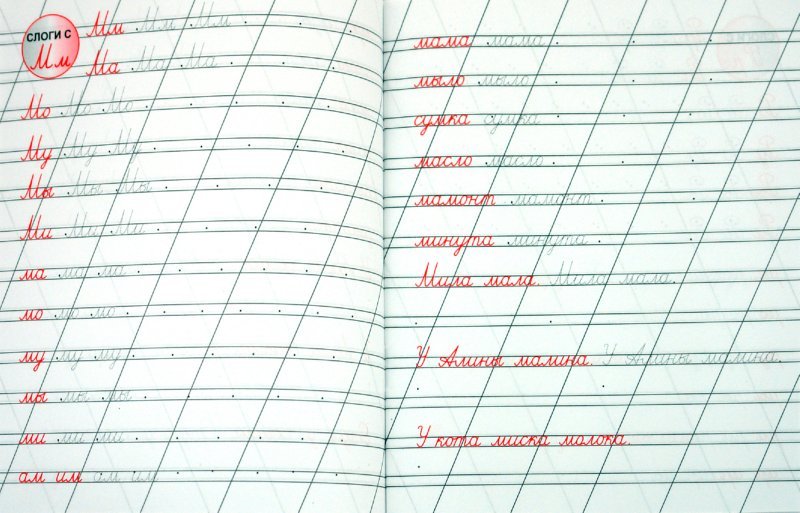 СЛОГИ С Мм
Мм Мм Мм
Ма Ма Ма
Мо Мо Мо
Му Му Му
Мы Мы Мы
Ми Ми Ми
ма ма ма
мо мо мо
му му му
мы мы мы
ми ми ми
ам им ам им
мама мама
мыло мыло
сумка сумка
масло масло
мамонт мамонт
минута минута
Мила мала. Мила мала.
У Алины малина. У Алины малина.
У кота миска молока.